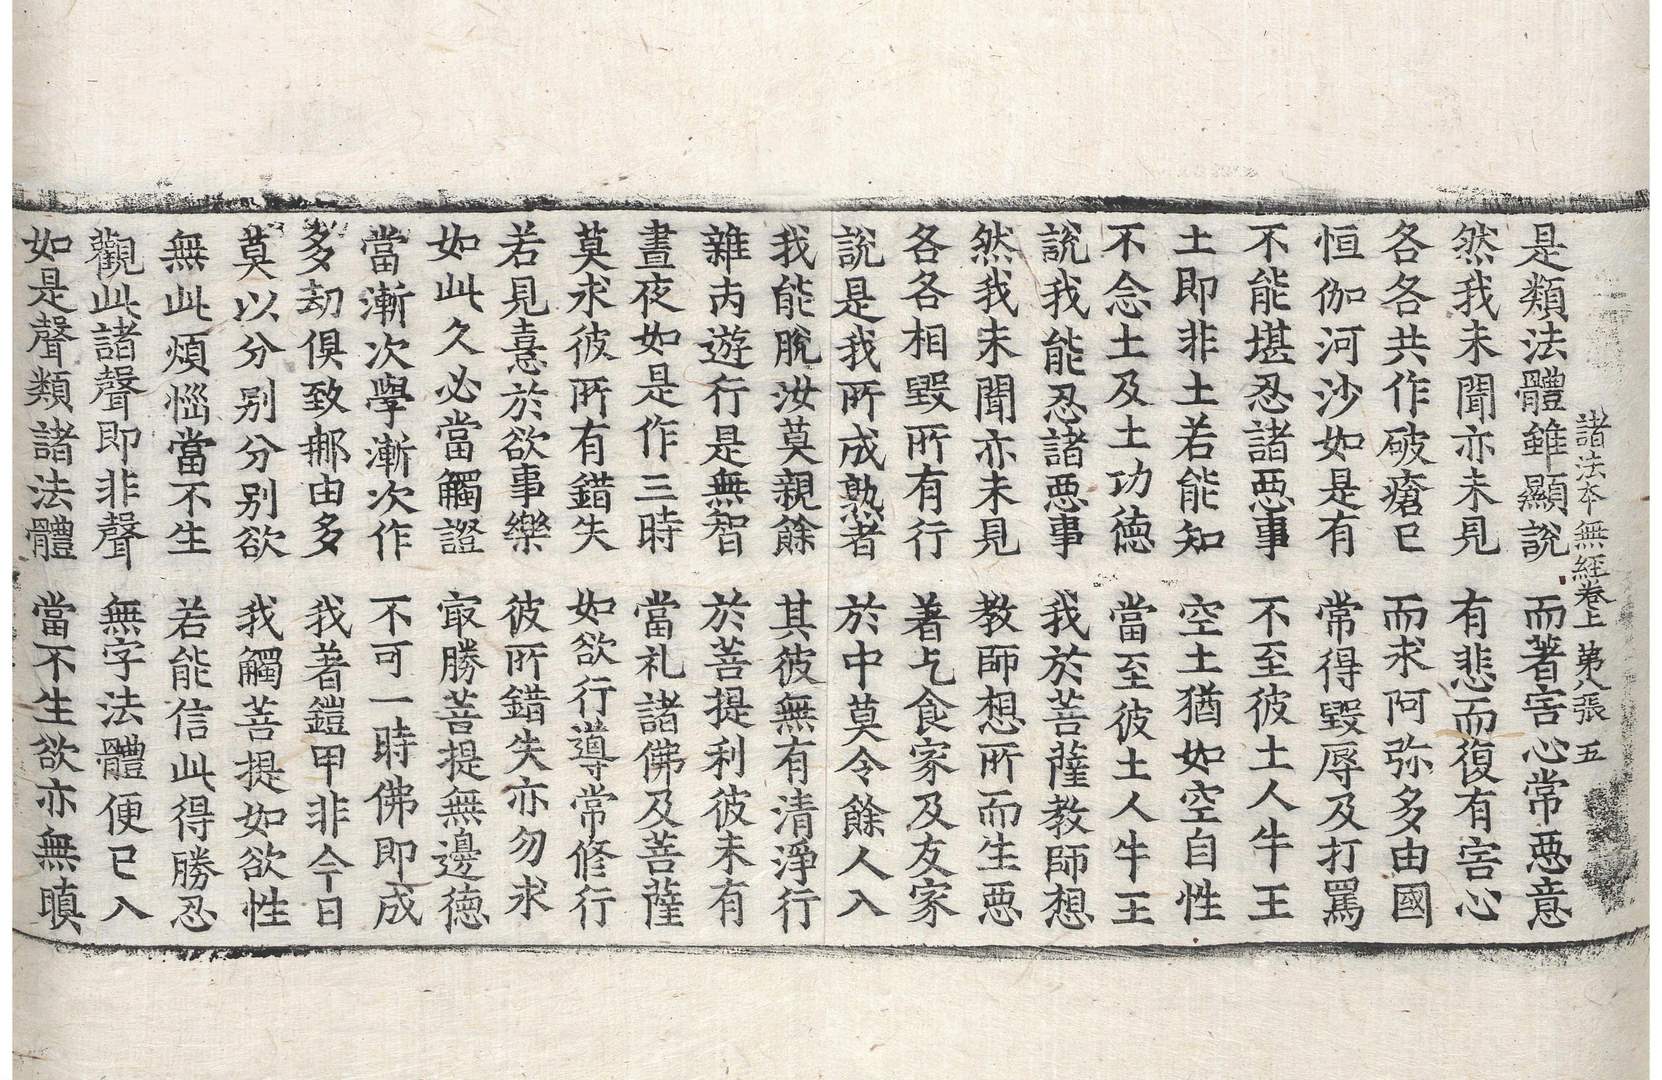 諸法本無經卷上 第八張 五
是類法體雖顯說 而著害心常惡意
然我未聞亦未見 有悲而復有害心
各各共作破瘡已 而求阿弥多由國
恒伽河沙如是有 常得毀辱及打罵
不能堪忍諸惡事 不至彼土人牛王
土即非土若能知 空土猶如空自性
不念土及土功德 當至彼土人牛王
說我能忍諸惡事 我於菩薩教師想
然我未聞亦未見 教師想所而生惡
各各相毀所有行 著乞食家及友家
說是我所成熟者 於中莫令餘人入
我能脫汝莫親餘 其彼無有清淨行
雜內遊行是無智 於菩提利彼未有
晝夜如是作三時 當礼諸佛及菩薩
莫求彼所有錯失 如欲行導常修行
若見憙於欲事樂 彼所錯失亦勿求
如此久必當觸證 㝡勝菩提無邊德
當漸次學漸次作 不可一時佛即成
多劫俱致那由多 我著鎧甲非今日
莫以分別分別欲 我觸菩提如欲性
無此煩惱當不生 若能信此得勝忍
觀此諸聲即非聲 無字法體便已入
如是聲類諸法體 當不生欲亦無瞋